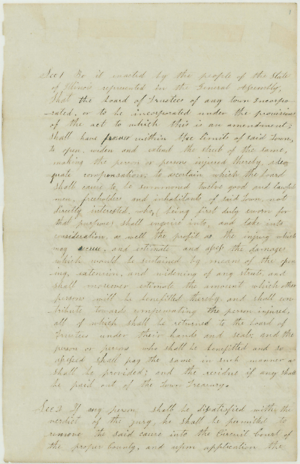 Sec 1 Be it enacted by the people of the State
of Illinois represented in the General Assembly,
That the board of Trustees of any town incorpo-
rated, or to be incorporated under the provisions
of the act to which this is an amendment,
shall have power within the limits of said town,
to open, widen and extend the streets of the same,
making the person or persons injured thereby, ade-
quate compensation; to ascertain which the board
shall cause to be summoned twelve good and lawful
men, freeholders and inhabitants of said town, not
directly interested, who, being first duly sworn for
that purpose, shall enquire into, and take into
consideration, as well the benefits as the injury which
may accrue, and estimate and assess the damages
which would be sustained by reason of the open-
ing, extension, and widening of any street; and
shall moreover estimate the amount which other
persons will be benefitted thereby, and shall con-
tribute towards compensating the person injured;
all of which shall be returned to the board of
Trustees under their hands and seals; and the
person or persons who shall be benefitted and so
assessed shall pay the same in such manner as
shall be provided; and the residue if any shall
be paid out of the town Treasury.
Sec 2 If any person shall be dissatisfied with the
verdict of the jury, he shall be permitted to
remove the said cause into the Circuit Court of
the proper County, and upon application the